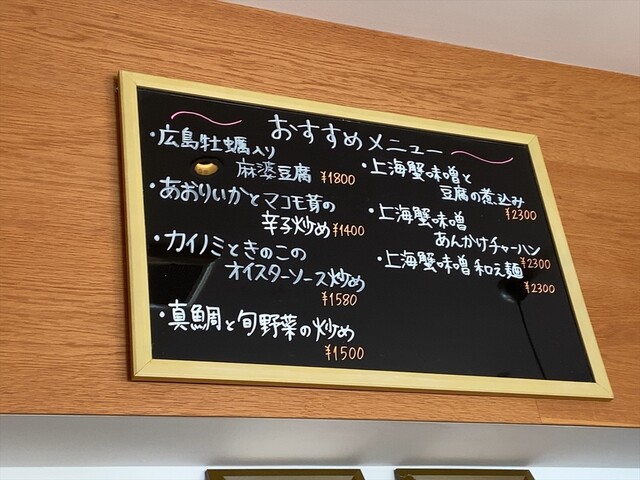 おすすめメニュー
・広島牡蠣入り
麻婆豆腐 ¥1800
・あおりいかとマコモ茸の
辛子炒め ¥1400
・カイノミときのこの
オイスターソース炒め
¥1580
・真鯛と旬野菜の炒め
¥1500
・上海蟹味噌と
豆腐の煮込み
¥2300
・上海蟹味噌
あんかけチャーハン
¥2300
・上海蟹味噌和え麺
¥2300